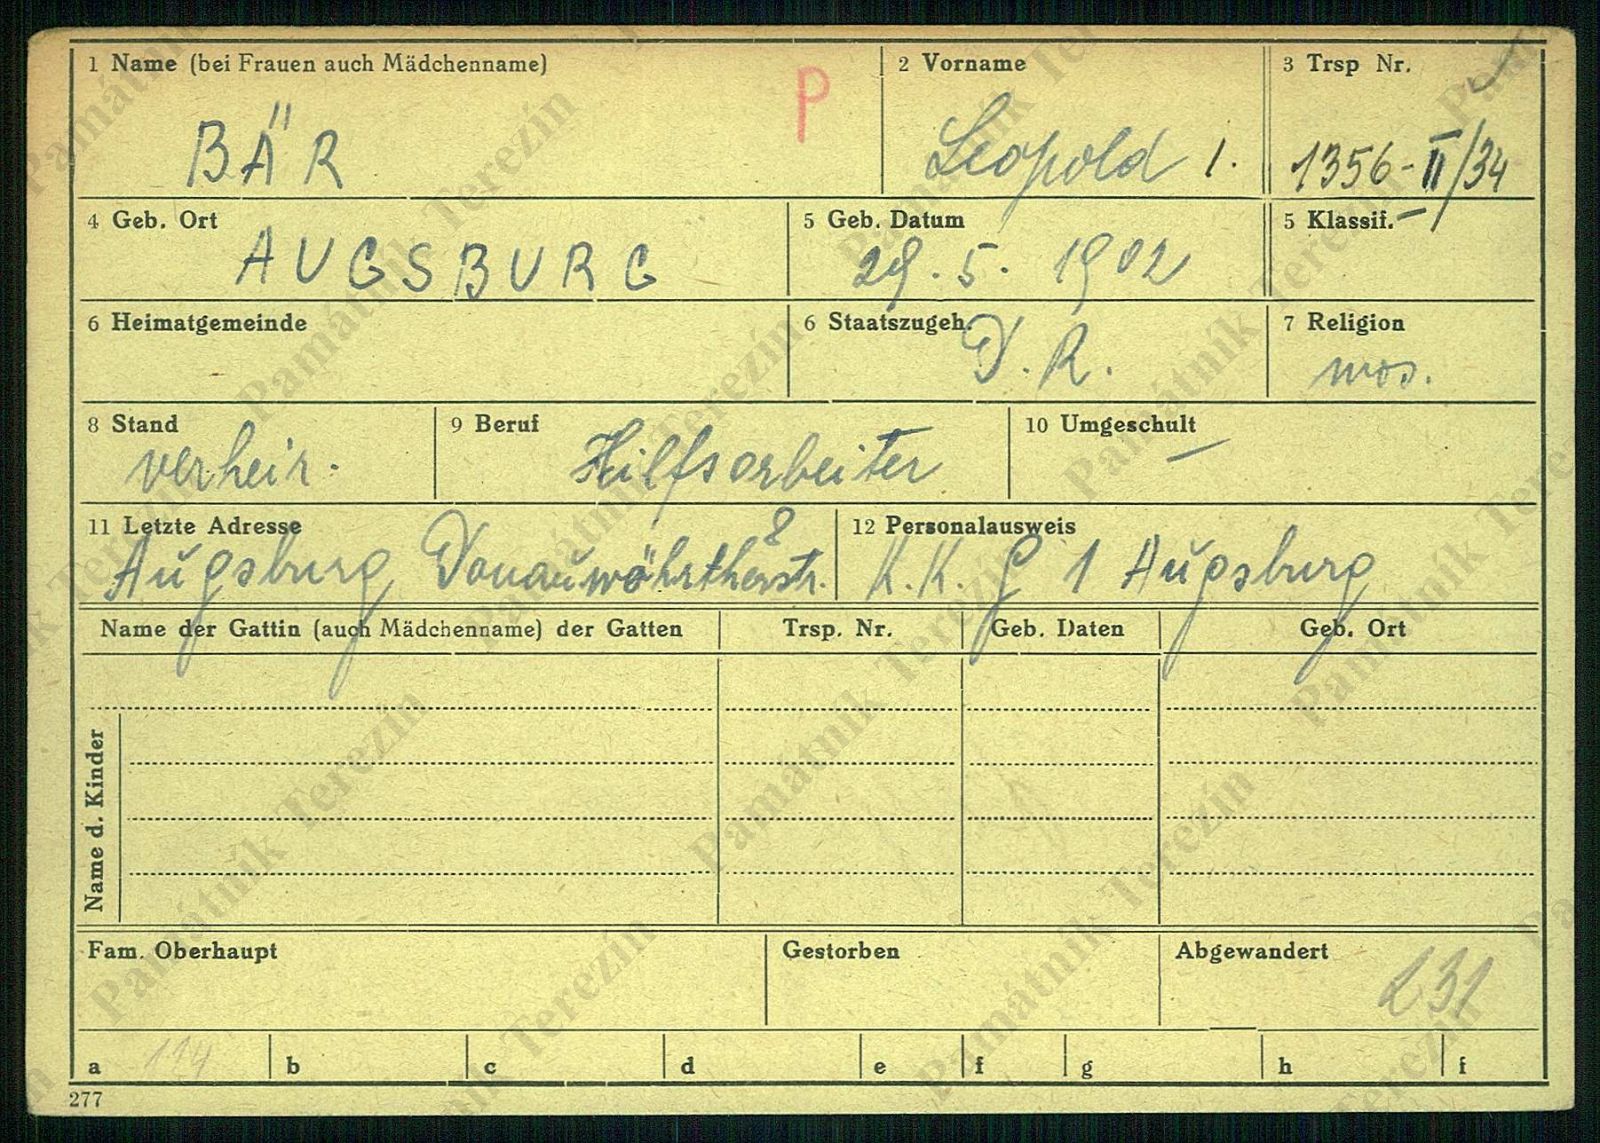 1 Name (bei Frauen auch Mädchenname) P 2 Vorname 3 Trsp Nr.
BÄR Leopold I. 1356-II/34
4 Geb. Ort 5 Geb. Datum 5 Klassif. –
AUGSBURG 29. 5. 1902
6 Heimatgemeinde 6 Staatszugeh. 7 Religion
D. R. mos.
8 Stand 9 Beruf 10 Umgeschult
verheir. Hilfsarbeiter –
11 Letzte Adresse 12 Personalausweis
Augsburg, Donauwöhrtherstr. 8 K.K. G 1 Augsburg
Name der Gattin (auch Mädchenname) der Gatten Trsp. Nr. Geb. Daten Geb. Ort
Name d. Kinder
Fam. Oberhaupt Gestorben Abgewandert
231
a 114 b c d e f g h i
277
Památník Terezín